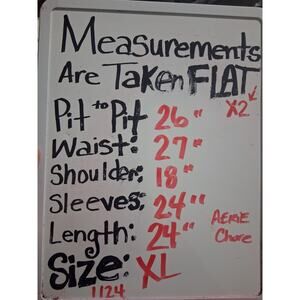 Measurements
Are Taken FLAT
Pit to Pit 26" X2
Waist: 27"
Shoulder: 18"
Sleeves: 24"
Length: 24" AERIE
Chore
Size: XL
1124